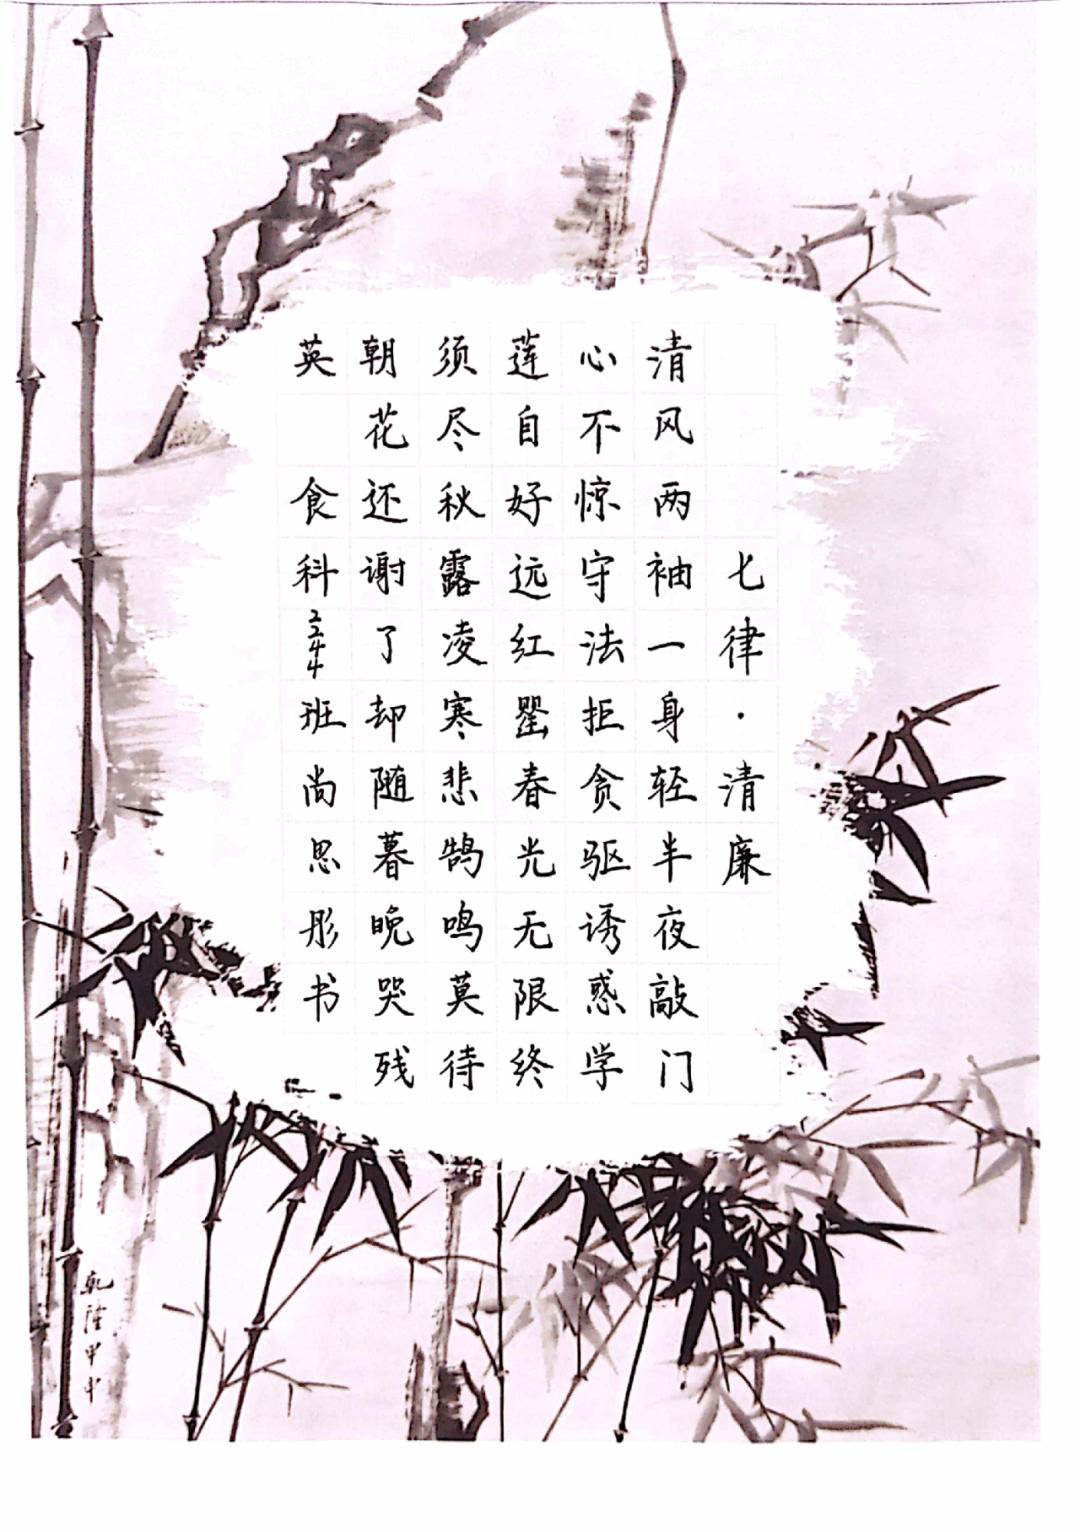 七律·清廉
清风两袖一身轻半夜敲门
心不惊守法拒贪驱诱惑学
莲自好远红罂春光无限终
须尽秋露凌寒悲鹄鸣莫待
朝花还谢了却随暮晚哭残
英 食科2244班尚思彤书
乾隆甲申